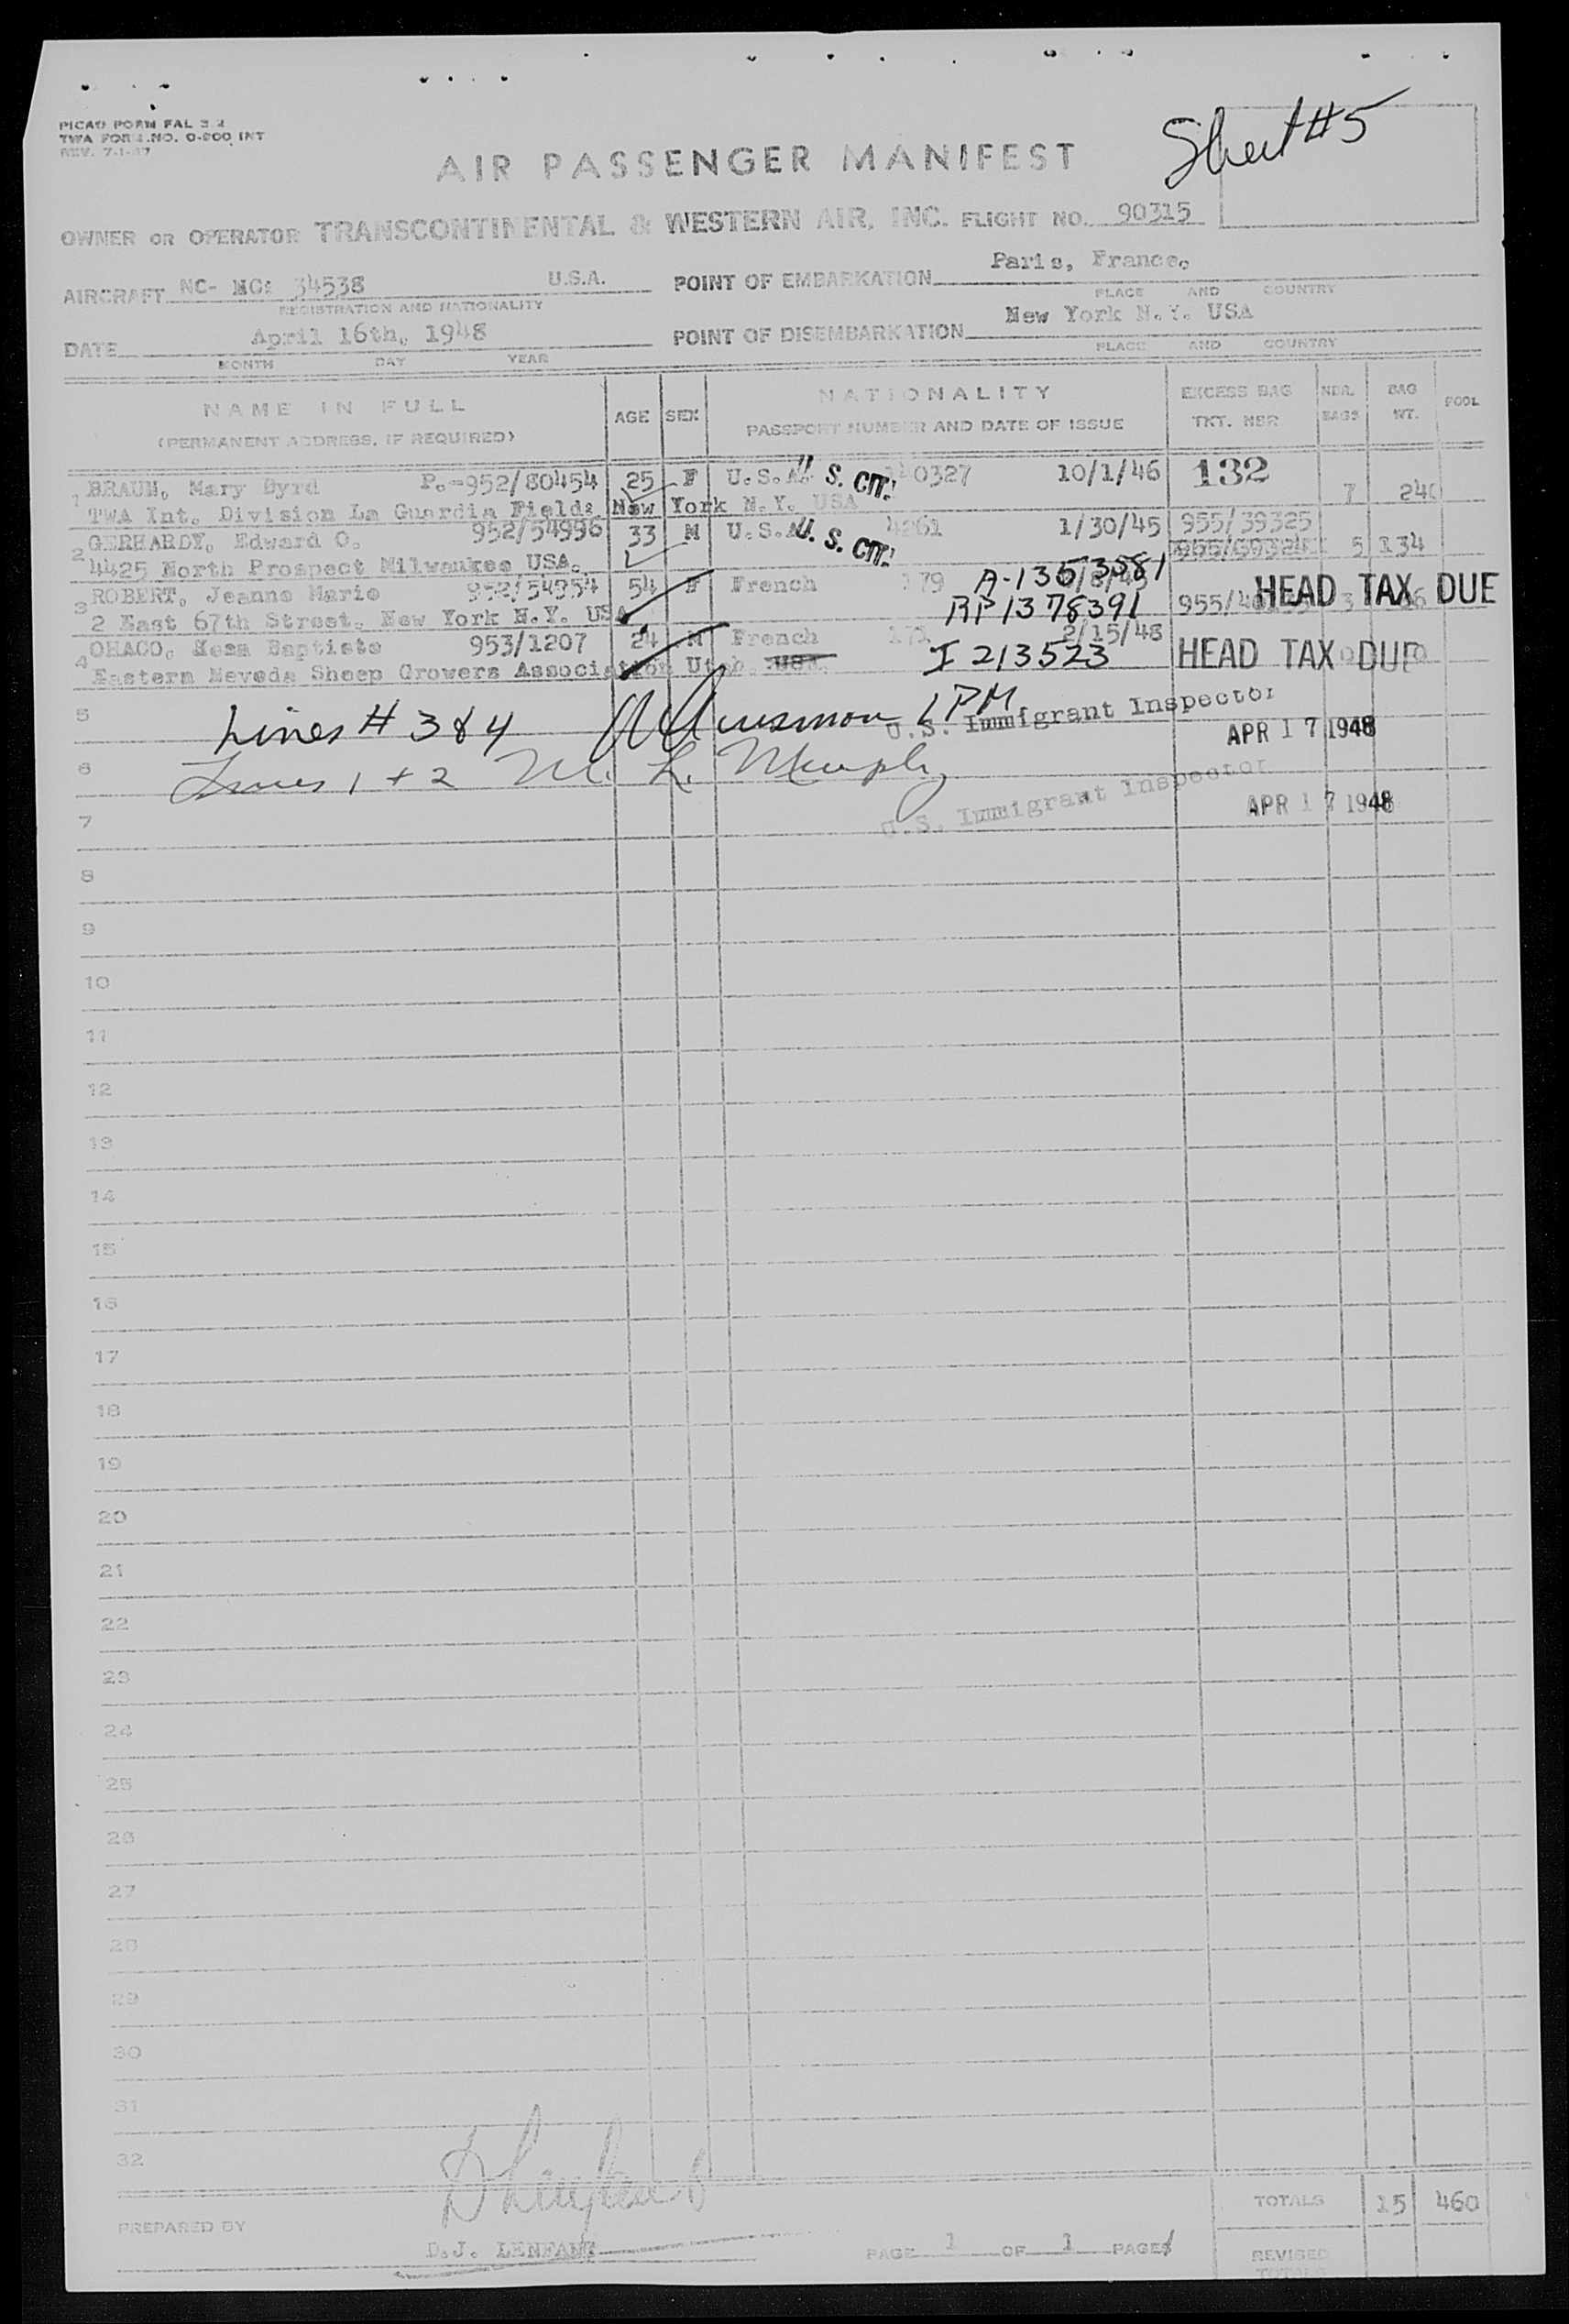 PICAO FORM FAL 3.2
TWA FORM NO. 0-800 INT
REV. 7-1-47
AIR PASSENGER MANIFEST
Sheet #5
OWNER OR OPERATOR TRANSCONTINENTAL & WESTERN AIR, INC. FLIGHT NO. 90315
AIRCRAFT NC- NC: 34538 U.S.A. POINT OF EMBARKATION Paris, France.
REGISTRATION AND NATIONALITY PLACE AND COUNTRY
DATE April 16th, 1948 POINT OF DISEMBARKATION New York N.Y. USA
MONTH DAY YEAR PLACE AND COUNTRY
NAME IN FULL AGE SEX NATIONALITY EXCESS BAG NBR. BAG POOL
(PERMANENT ADDRESS, IF REQUIRED) PASSPORT NUMBER AND DATE OF ISSUE TKT. NBR BAGS WT.
1 BRAUN, Mary Byrd P.-952/80454 25 F U.S.A. U. S. CIT. 10/1/46 132 7 240
TWA Int. Division La Guardia Field: New York N.Y. USA
2 GERHARDY, Edward O. 952/54996 33 M U.S.A. U. S. CIT. 4261 1/30/45 955/39325
4425 North Prospect Milwaukee USA. 955/39324 5 134
3 ROBERT, Jeanne Marie 952/54954 54 F French 179 A-1353581 955/ 3 HEAD TAX DUE
2 East 67th Street, New York N.Y. USA RP 1378391
4 OHACO, Jean Baptiste 953/1207 24 M French 2/15/48 HEAD TAX DUE
Eastern Nevada Sheep Growers Association Utah USA. I 213523
5 Lines # 3 & 4 1 PM U.S. Immigrant Inspector APR 17 1948
6 Lines 1 + 2 M. L. Murphy U.S. Immigrant Inspector APR 17 1948
7
8
9
10
11
12
13
14
15
16
17
18
19
20
21
22
23
24
25
26
27
28
29
30
31
32
TOTALS 15 460
PREPARED BY D.J. LENFANT PAGE 1 OF 1 PAGES REVISED
TOTALS